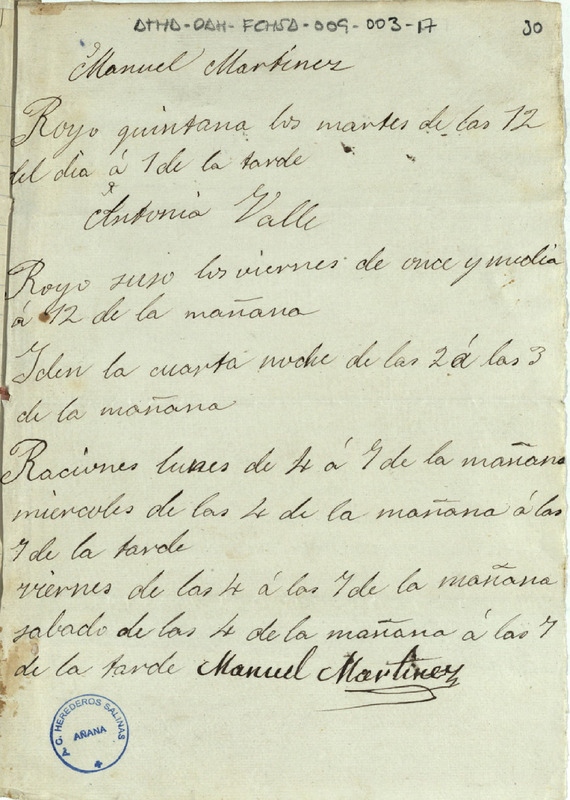 ATHA-DAH-FCHSA-009-003-17
30
Manuel Martinez
Royo quintana los martes de las 12
del dia á 1 de la tarde
Antonia Valle
Royo suso los viernes de once y media
á 12 de la mañana
Iden la cuarta noche de las 2 á las 3
de la mañana
Raciones lunes de 4 á 7 de la mañana
miercoles de las 4 de la mañana á las
7 de la tarde
viernes de las 4 á las 7 de la mañana
sabado de las 4 de la mañana á las 7
de la tarde Manuel Martinez
A. C. HEREDEROS SALINAS
AÑANA